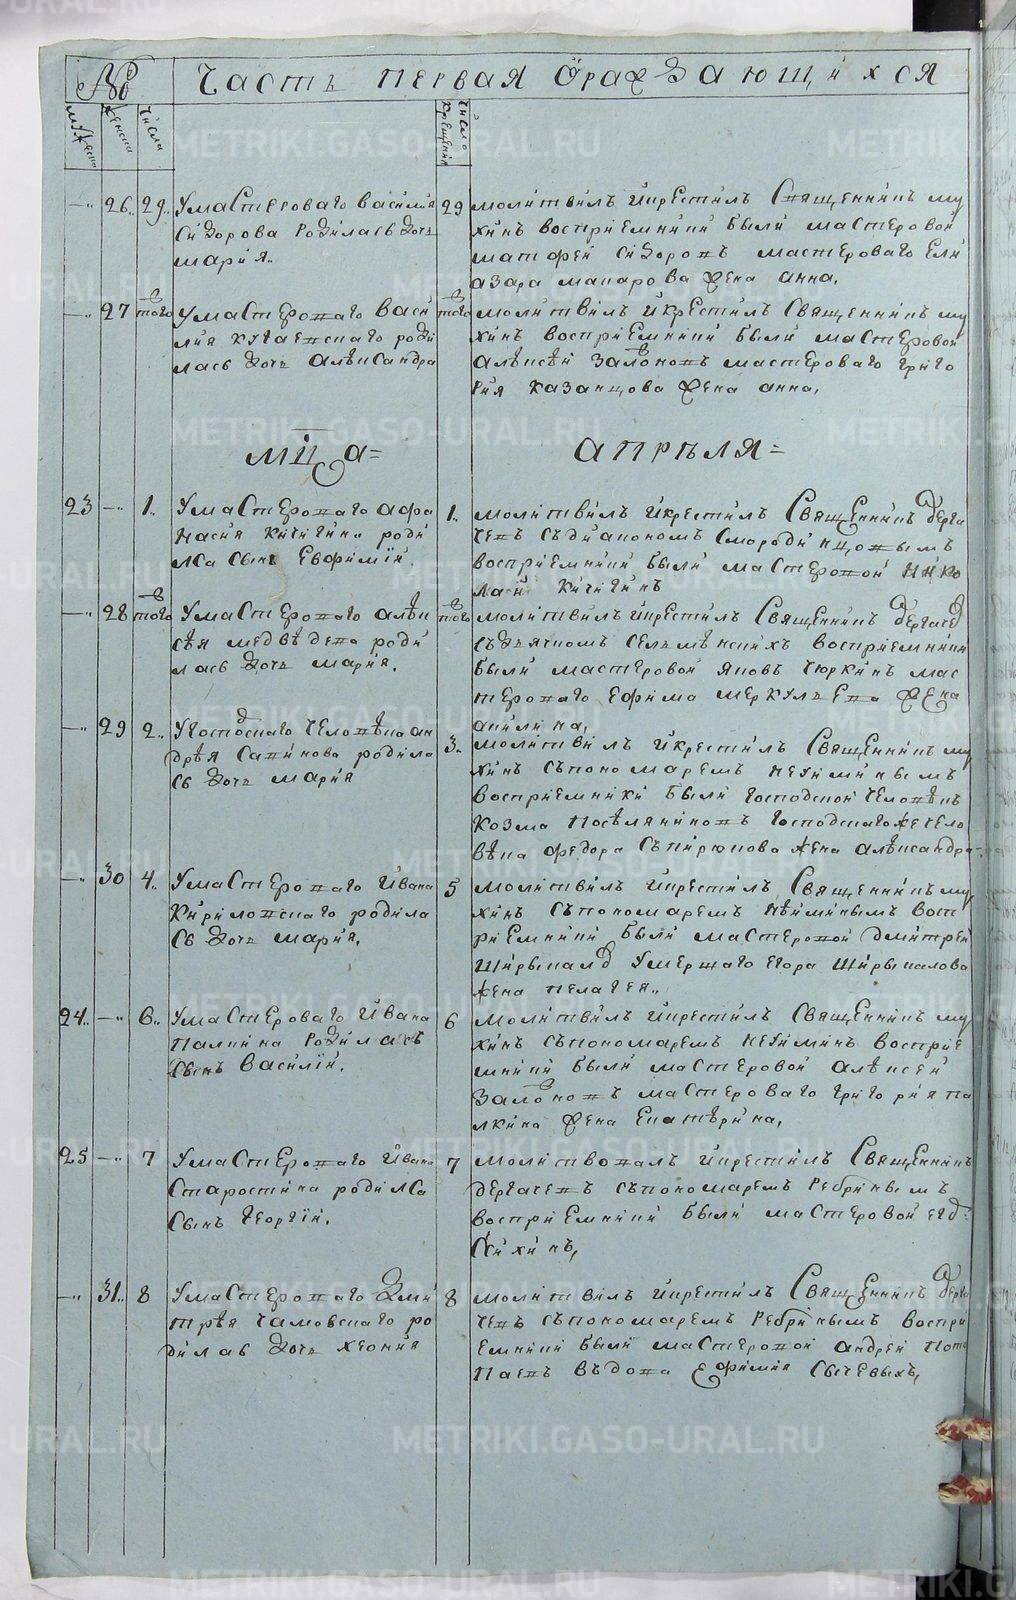 № Часть первая Ораждающихся
мужеска женска числа число крещения
— 26.. 29.. У мастероваго василия
Сидорова родилась дочь
мария..
29 молитвилъ икрестилъ Священникъ му
хинъ восприемники были мастеровой
матфей сидоровъ мастероваго Ели
азара макарова жена анна,
— 27 того У мастероваго васи
лия кугаевскаго роди
лась дочь алѣксандра
того молитвилъ икрестилъ Священникъ му
хинъ восприемники были мастеровой
алѣксѣй заловковъ мастероваго григо
рия казанцова жена анна,
мц҃а = апрѣля =
23 — 1.. У мастероваго афа
насия кичигина роди
лса сынъ Евфимiй.
1.. молитвилъ икрестилъ Священникъ дерга
чевъ съдиакономъ Смородинцовымъ
восприемники были мастеровой нико
лай кичигинъ
— 28 того У мастероваго алѣк
сѣя медвѣдева роди
лась дочь мария.
того молитвилъ икрестилъ Священникъ дергачевъ
съдьячкомъ Селѣменскихъ восприемники
были мастеровой яковъ чюркинъ мас
тероваго ефима меркульева жена
акилина,
— 29 2.. У господскаго человѣка ан
дрѣя Сапикова родила
сь дочь мария
3.. молитвилъ икрестилъ Священникъ му
хинъ съпономаремъ неуиминымъ
восприемники были господской человѣкъ
козма посѣляниновъ господскагоже чело
вѣка федора Съпирюкова жена алѣксандра
— 30 4.. У мастероваго ивана
Кириловскаго родила
сь дочь мария,
5 молитвилъ икрестилъ Священникъ му
хинъ съпономаремъ нѣиминымъ восп
риемники были мастеровой дмитрей
Ширыкаловъ умершаго егора Ширыкалова
жена пелагея..
24.. — 6.. У мастероваго ивана
палкина родилась
сынъ василiй.
6 молитвилъ икрестилъ Священникъ му
хинъ съпономаремъ неуиминъ восприе
мники были мастеровой алѣксей
заловковъ мастероваго григория па
лкина жена Екатѣрина,
25 — 7 У мастероваго ивана
Старостина родилса
сынъ георгiй.
7 молитвовалъ икрестилъ Священникъ
дергачевъ съпономаремъ ребринымъ
восприемники были мастеровой
— 31.. 8 У мастероваго дми
трѣя чамовскаго ро
дилась дочь хеония
8 молитвилъ икрестилъ Священникъ дерга
чевъ съпономаремъ ребринымъ воспри
емники были мастеровой андрей пота
паевъ въдова ефимия сычевыхъ,
METRIKI.GASO-URAL.RU